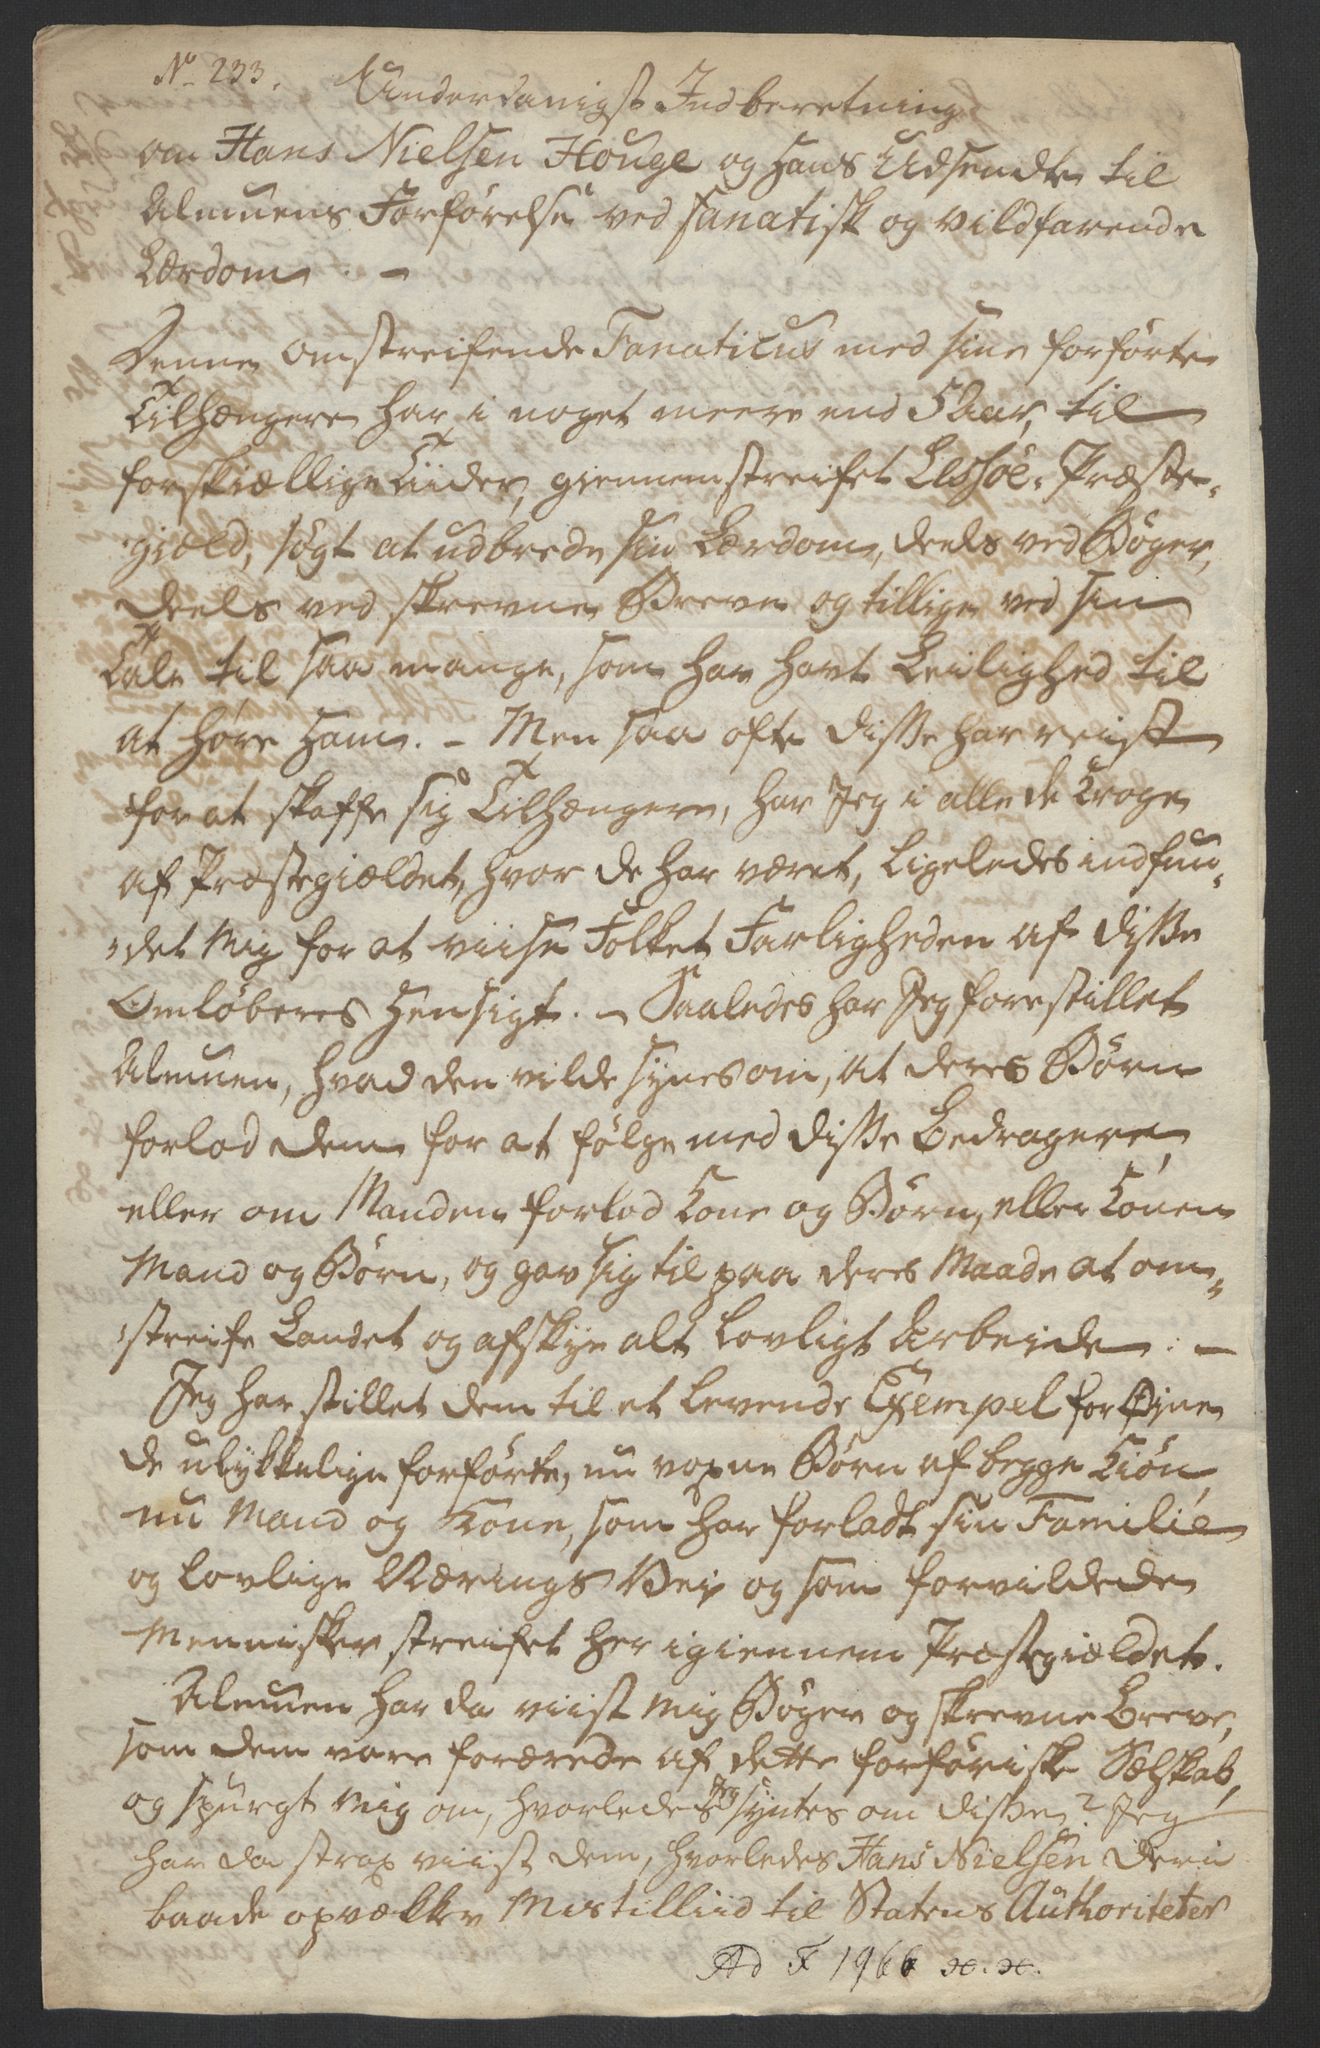 No 233. Underdanigst Indberetning
om Hans Nielsen Houge og hans Udsendte til
Almuens Forförelse ved fanatisk og vildfarende
Lærdom. -
Denne omstreifende Fanaticus med sine forförte
Tilhængere har, i noget meere end 5 Aar, til
forskiællige Tiider, giennemstreifet Lessöe-Præste-
gield, sögt at udbrede sin Lærdom, deels ved Böger,
deels ved skrevne Breve og tillige ved sin
Tale til saa mange, som har havt Leilighed til
at höre ham. - Men saa ofte disse har reist
for at skaffe sig Tilhængere, har Jeg i alle de Kroge
af Præstegieldet, hvor de har været, ligeledes indfun-
det mig for at viise Folket Farligheden af disse
Omlöberes Hensigt. - Saaledes har Jeg forestillet
Almuen, hvad den vilde synes om, at deres Börn
forlod dem for at fölge med disse Bedragere,
eller om Manden forlod Kone og Börn, eller Konen
Mand og Börn, og gav sig til paa deres Maade at om-
streife Landet og afskye alt lovligt Arbeide. -
Jeg har stillet dem til et levende Exempel for Öjne
de ulykkelige forförte, nu voxne Börn af begge Kiön,
nu Mand og Kone, som har forladt sin Familie
og lovlige Nærings Vei og som forvildede
Mennisker streifet her igiennem Præstegieldet.
Almuen har da viist mig Böger og skrevne Breve,
som dem vare forærede af dette forföriske Selskab,
og spurgt mig om, hvorledes Jeg syntes om disse? Jeg
har da strax viist dem, hvorledes Hans Nielsen deri
baade opvækker Mistilliid til Statens Authoriteter
Ad F 1966